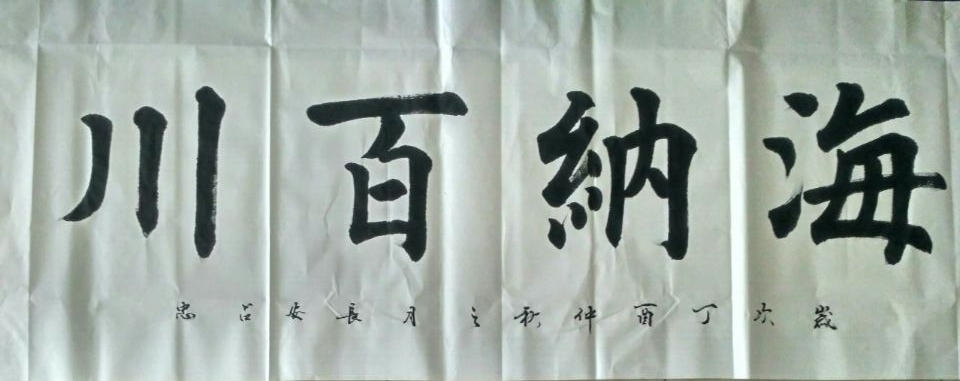 海納百川
歲次丁酉仲秋之月長安呂忠